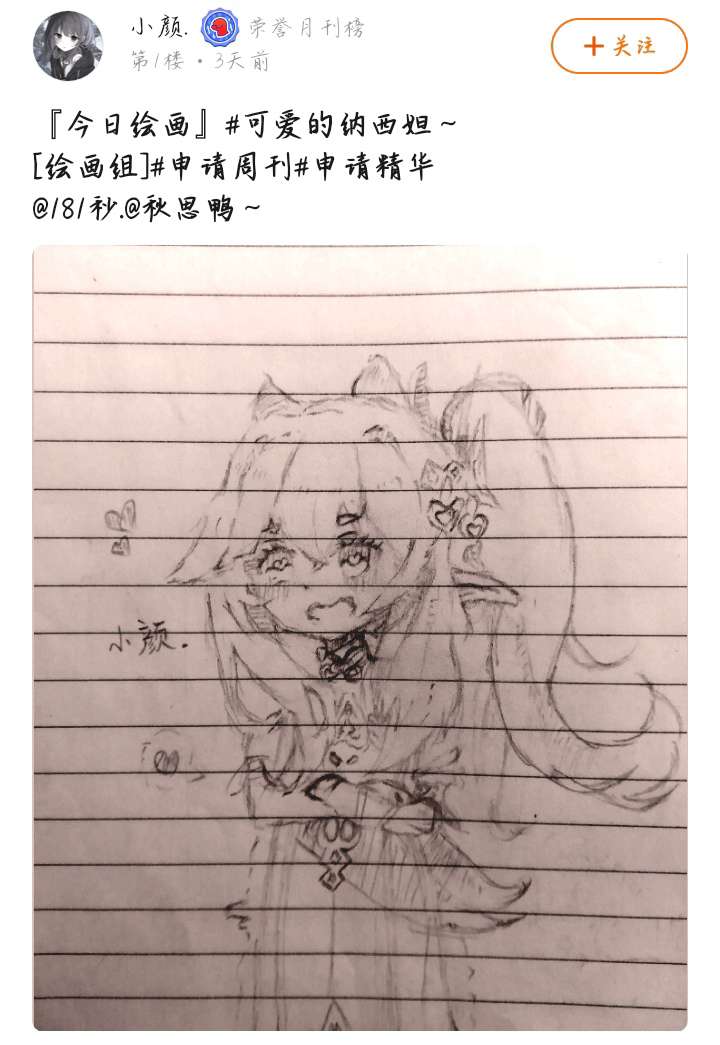 小颜. 荣誉月刊榜
第1楼 • 3天前
+ 关注
『今日绘画』#可爱的纳西妲~
[绘画组]#申请周刊#申请精华
@181秒.@秋思鸭~
小颜.